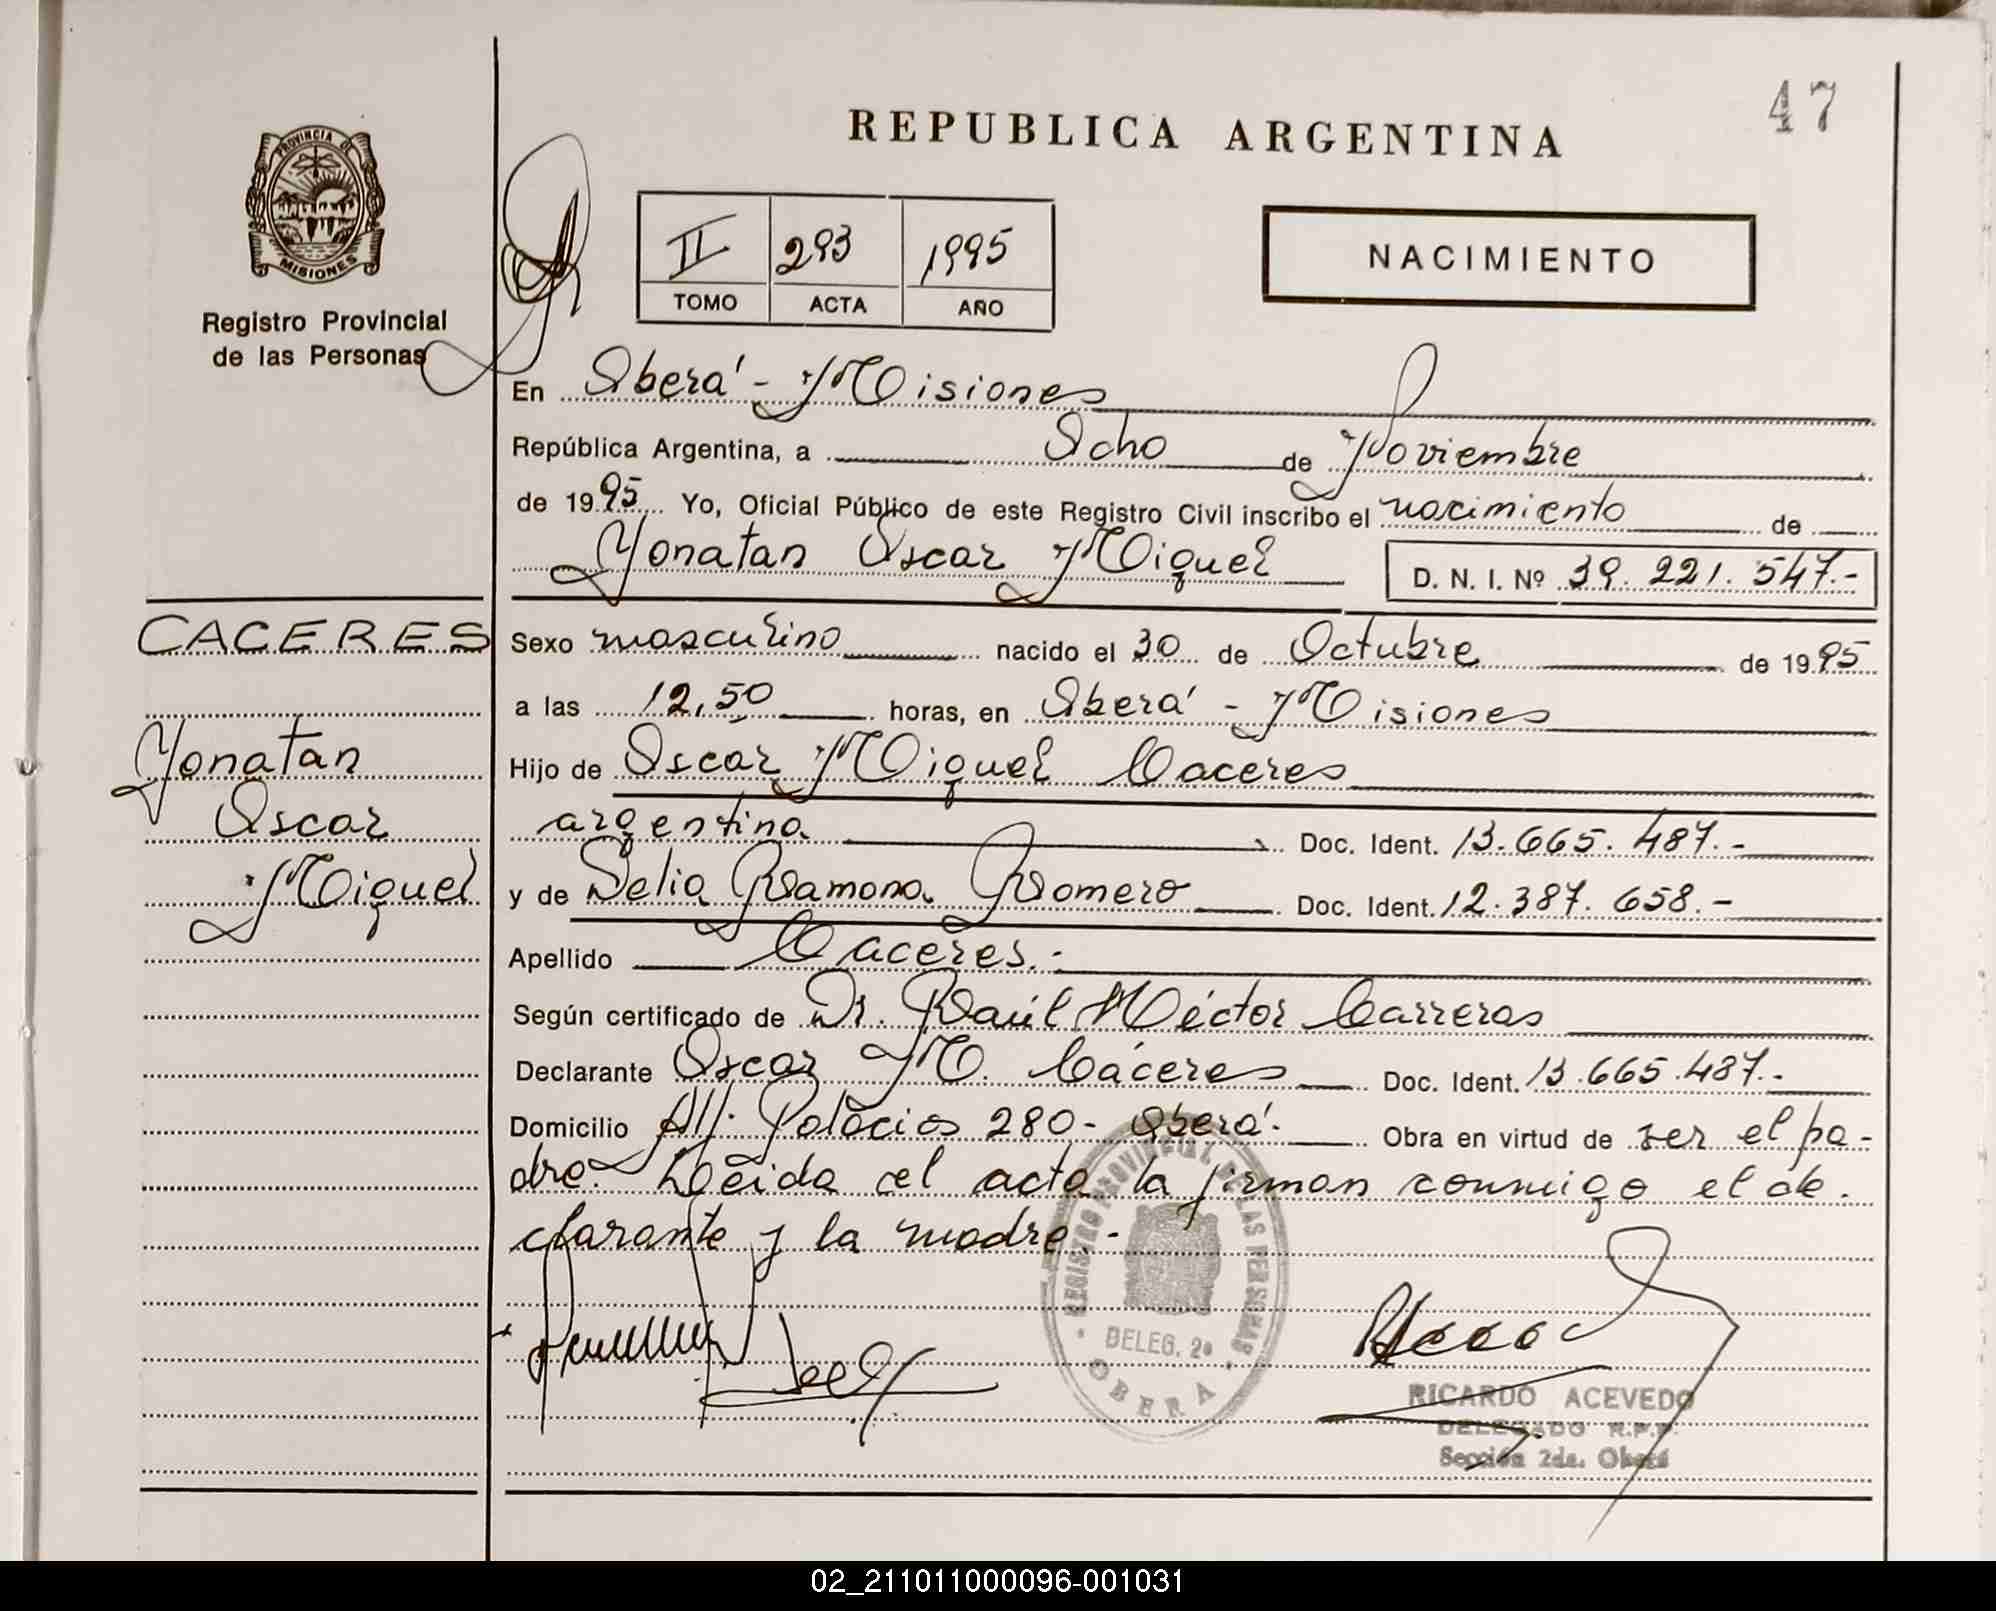 47
REPUBLICA ARGENTINA
PROVINCIA DE
MISIONES
Registro Provincial
de las Personas
II 293 1995
TOMO ACTA AÑO
NACIMIENTO
En Oberá - Misiones
República Argentina, a Ocho de Noviembre
de 1995 Yo, Oficial Público de este Registro Civil inscribo el nacimiento de
Yonatan Oscar Miguel D. N. I. Nº 39.221.547.-
CACERES
Yonatan
Oscar
Miguel
Sexo masculino nacido el 30 de Octubre de 1995
a las 12,50 horas, en Oberá - Misiones
Hijo de Oscar Miguel Caceres
argentino Doc. Ident. 13.665.487.-
y de Delia Ramona Romero Doc. Ident. 12.387.658.-
Apellido Caceres.-
Según certificado de Dr. Raúl Héctor Carreras
Declarante Oscar M. Cáceres Doc. Ident. 13.665.487.-
Domicilio Alf. Palacios 280- Oberá.- Obra en virtud de ser el pa-
dre. Leída el acta la firman conmigo el de-
clarante y la madre.-
REGISTRO PROVINCIAL DE LAS PERSONAS
DELEG. 2a
OBERA
RICARDO ACEVEDO
DELEGADO R.P.P.
Sección 2da. Oberá
02_211011000096-001031